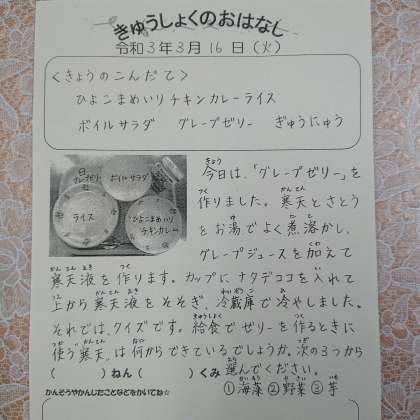 きゅうしょくのおはなし
令和3年3月16日(火)
<きょうのこんだて>
ひよこまめいり チキンカレーライス
ボイルサラダ グレープゼリー ぎゅうにゅう
ボイルサラダ
ライス
ひよこまめいり
チキンカレー
今日は、「グレープゼリー」を
作りました。寒天とさとう
をお湯でよく煮溶かし、
グレープジュースを加えて
寒天液を作ります。カップにナタデココを入れて
上から寒天液をそそぎ、冷蔵庫で冷やしました。
それでは、クイズです。給食でゼリーを作るときに
使う"寒天"は何からできているでしょうか。次の3つから
( )ねん( )くみ 選んでください。
かんそうやかんしたことなどをかいてね☆ ①海藻 ②野菜 ③芋